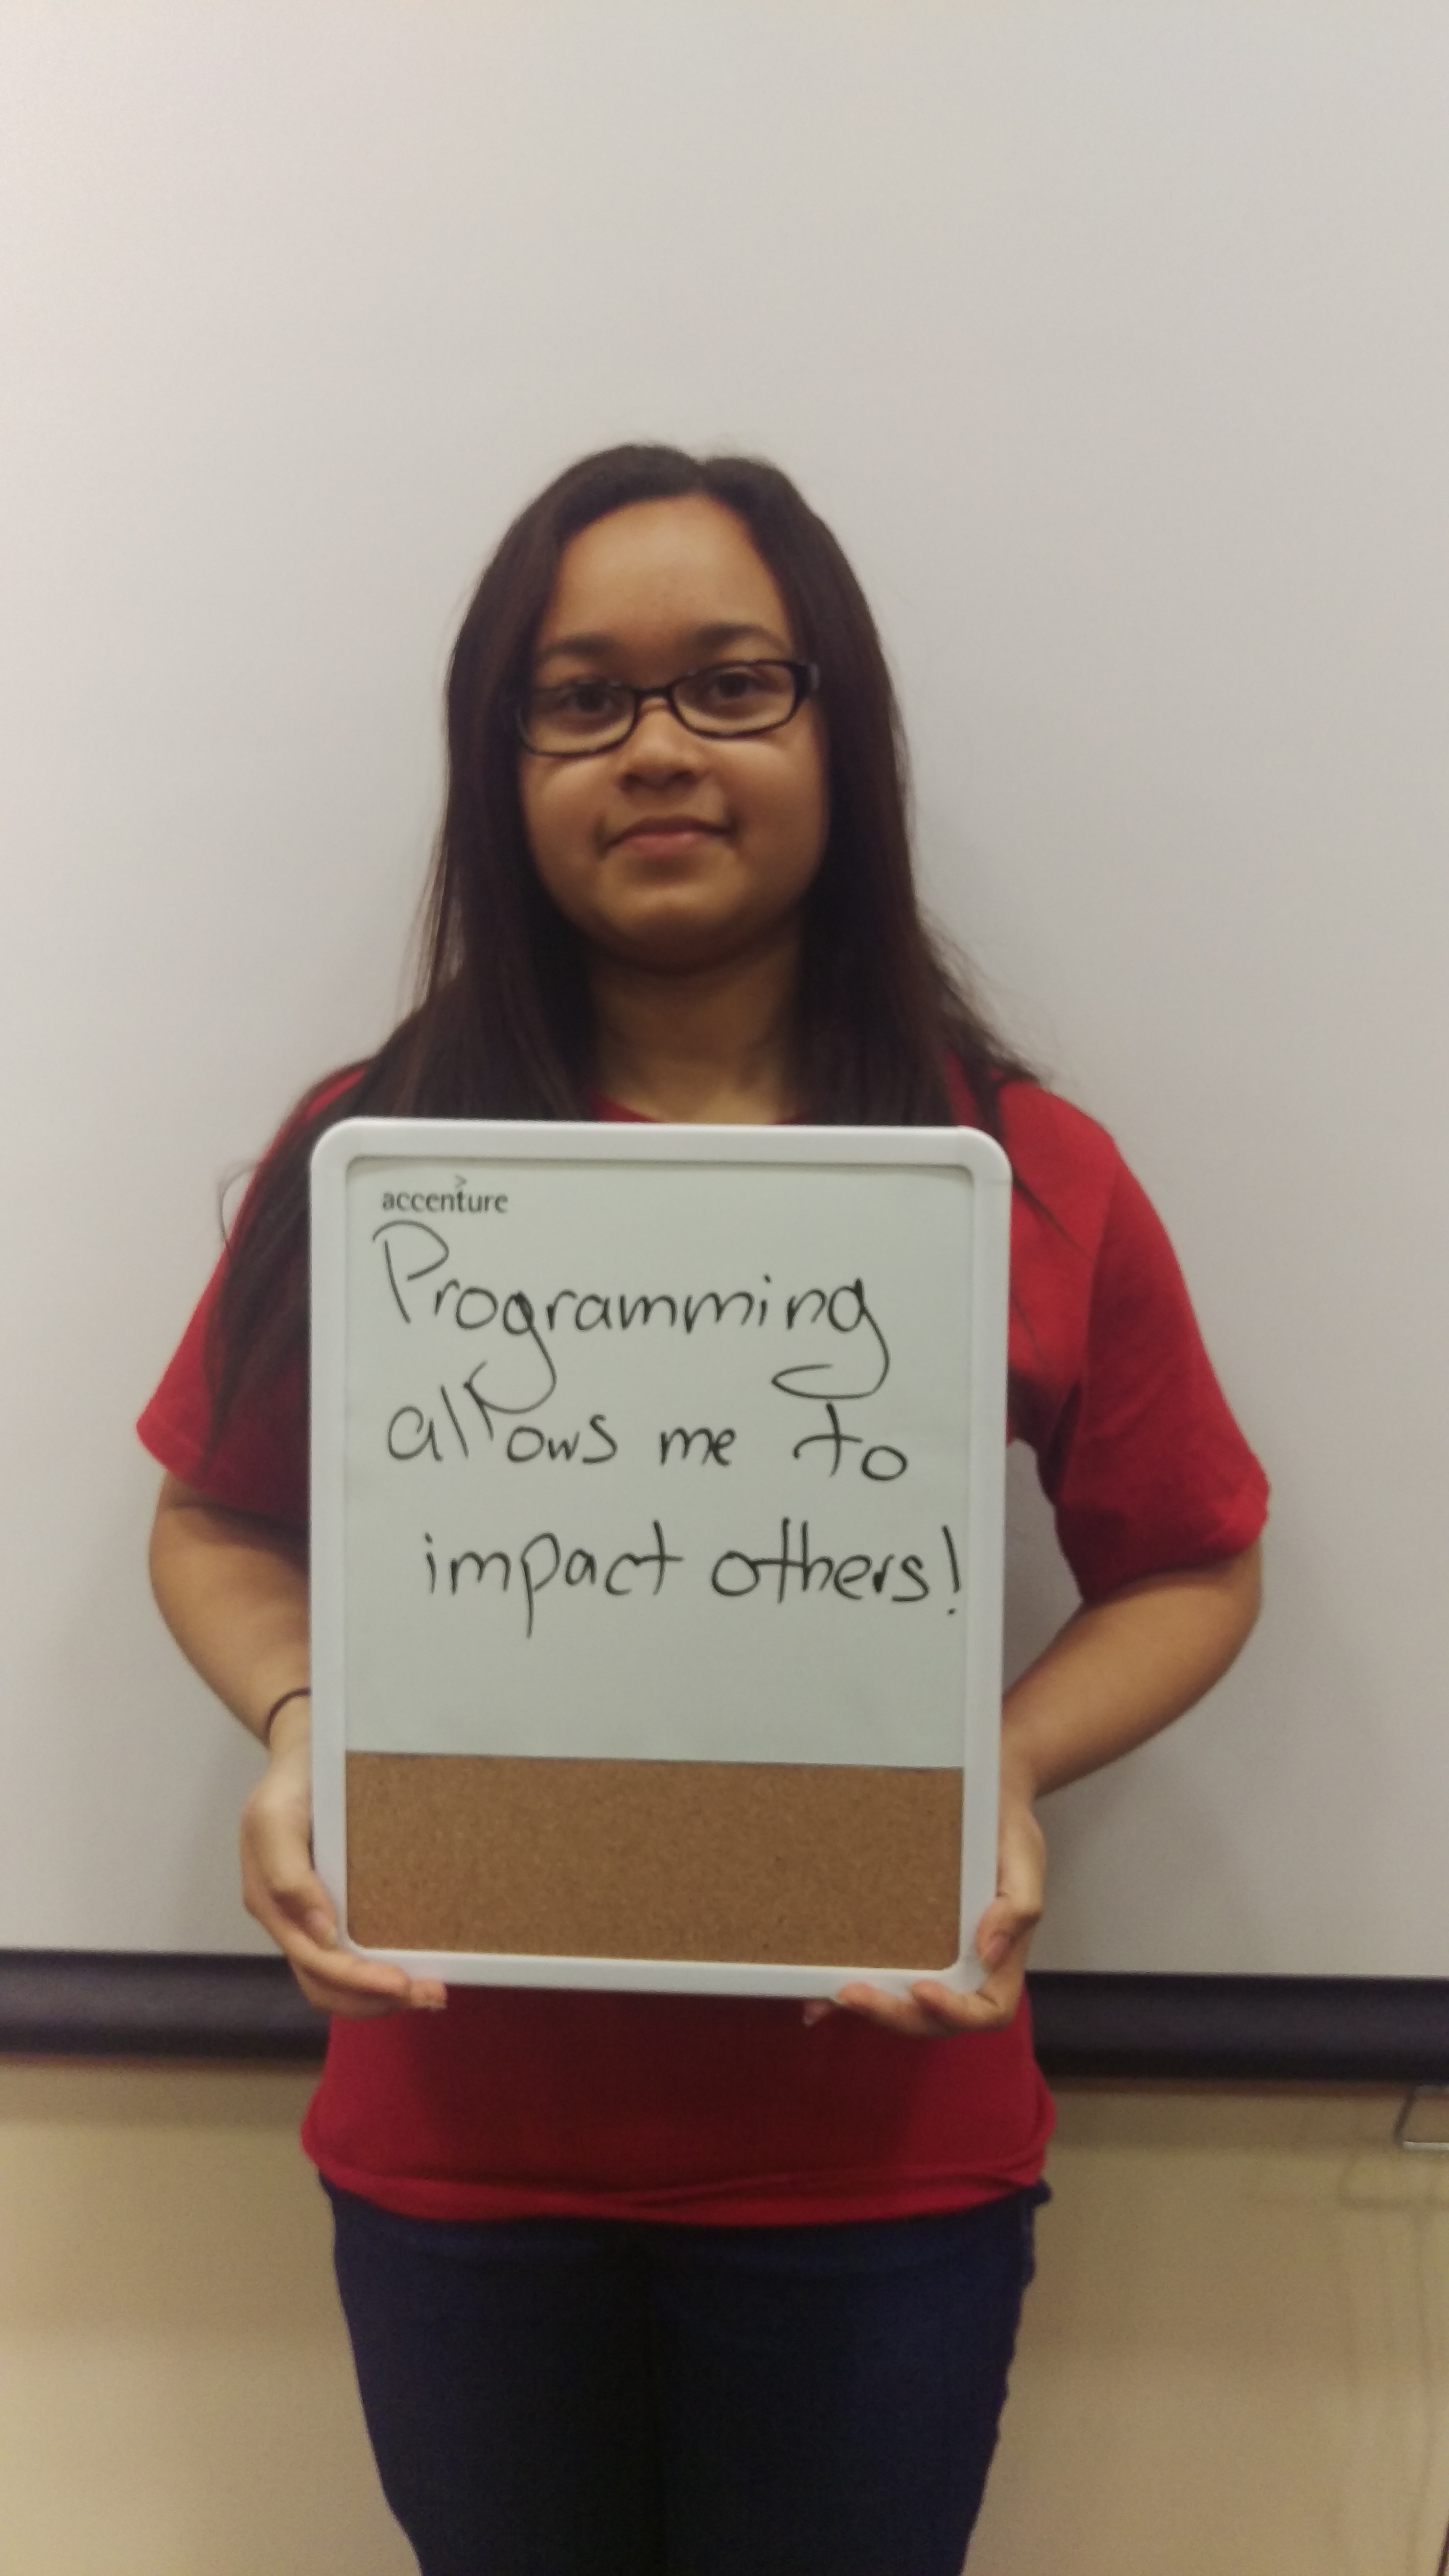 accenture
Programming
allows me to
impact others!